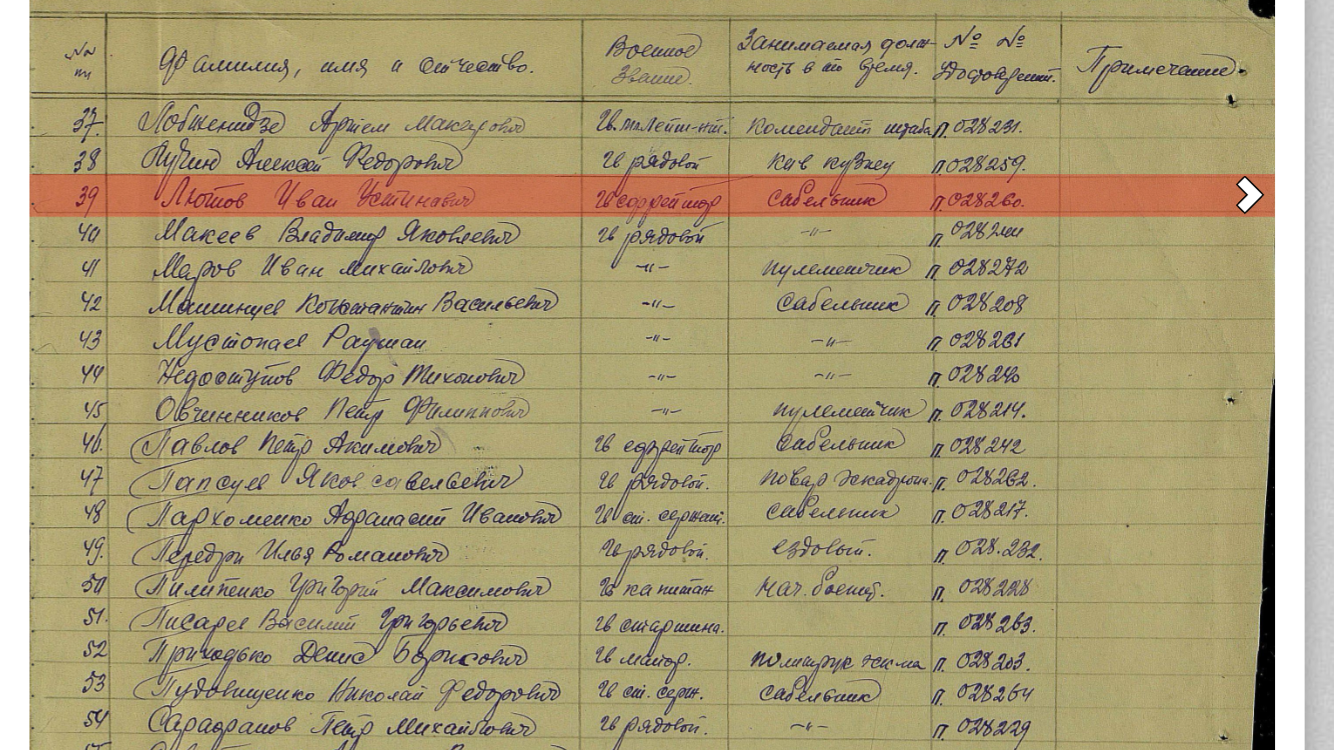 №№ пп Фамилия, имя и отчество. Военное звание. Занимаемая долж- ность в то время. №№ Удостоверений. Примечание.
37. Лобженидзе Артем Макарович Гв. мл. лейт-нт. Комендант штаба п. 028231.
38 Лучин Алексей Федорович Гв рядовой Ков кузнец п. 028259.
39 Лютов Иван Устинович Гв ефрейтор Сабельник п. 028260.
40 Макеев Владимир Яковлевич Гв рядовой -"- п.
41 Маров Иван Михайлович -"- пулеметчик п. 028272
42 Машинцев Константин Васильевич -"- Сабельник п. 028208
43 Мустопаев Рахман -"- -"- п. 028261
44 Недоступов Федор Тихонович -"- -"- п. 028240
45 Овчинников Петр Филиппович -"- пулеметчик п. 028214.
46. Павлов Петр Акимович Гв ефрейтор Сабельник п. 028242
47 Папсуев Яков савельевич Гв рядовой. повар эскадрона. п. 028262.
48 Пархоменко Афанасий Иванович Гв ст. сержант. Сабельник п. 028217.
49. Передри Илья Романович Гв рядовой. ездовый. п. 028.232.
50 Пилипенко Григорий Максимович Гв капитан Нач. боепит. п. 028228
51. Писарев Василий Григорьевич Гв старшина. п. 028263.
52 Приходько Денис Борисович Гв майор. политрук эск-на п. 028203.
53 Пудовищенко Николай Федорович Гв ст. серж. Сабельник п. 028264
54 Сарафанов Петр Михайлович Гв рядовой. -"- п. 028229